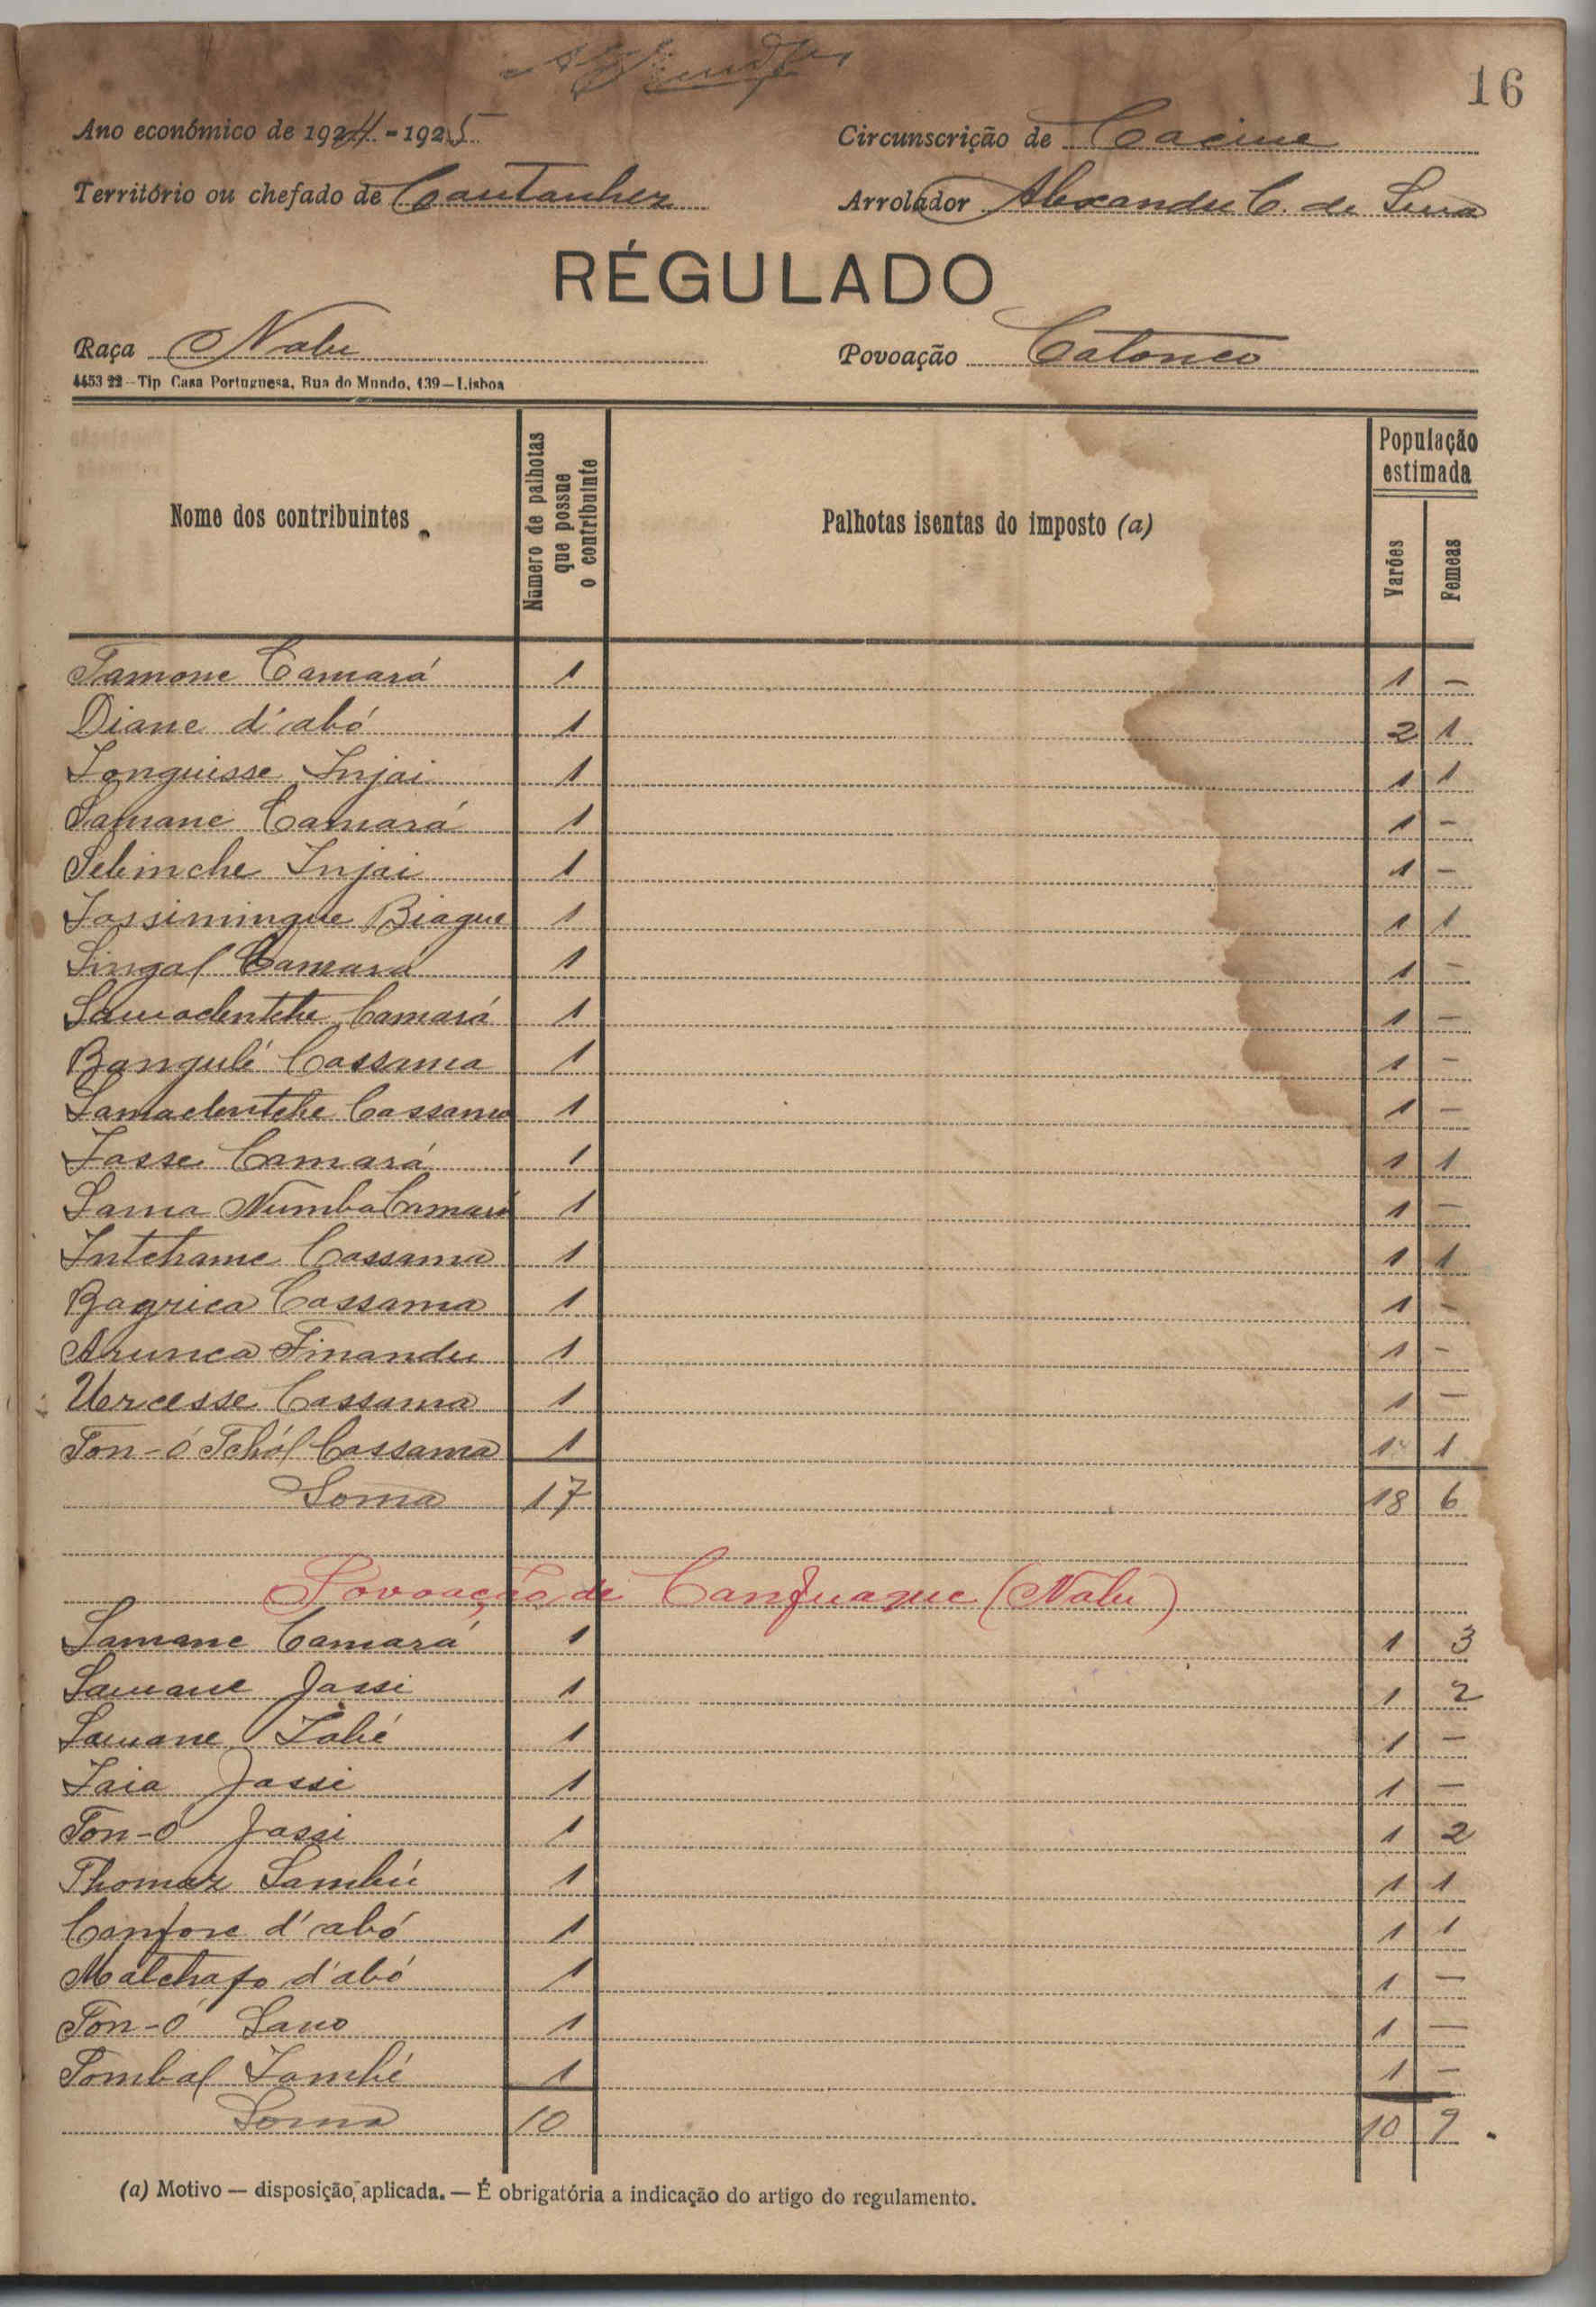 16
Ano económico de 1924-1925 Circunscrição de Cacine
Território ou chefado de Cantanhez Arrolador Alexandre C. de
RÉGULADO
Raça Nalu Povoação Catonco
4453 22-Tip Casa Portuguesa, Rua do Mundo, 139-Lisboa
Nome dos contribuintes Número de palhotas que possue o contribuinte Palhotas isentas do imposto (a) População estimada Varões Femeas
Tamone Camará 1 1 —
Diane d'abó 1 2 1
Songuisse Injai 1 1 1
Samane Camará 1 1 —
Sebinche Injai 1 1 —
Jassimingue Biague 1 1 1
Singal Camara 1 1 —
Samaclentche Camará 1 1 —
Bangulé Cassama 1 1 —
Samaclentche Cassama 1 1 —
Jasse Camará 1 1 1
Sama Numba Camará 1 1 —
Intchame Cassama 1 1 1
Bagrica Cassama 1 1 —
Arunca Finandu 1 1 —
Urcesse Cassama 1 1 —
Ton-ó Tchól Cassama 1 1 1
Soma 17 18 6
Povoação de Canfuaque (Nalu)
Samane Camará 1 1 3
Samane Jassi 1 1 2
Samane Tabé 1 1 —
Iaia Jassi 1 1 —
Ton-ó Jassi 1 1 2
Thomaz Sambú 1 1 1
Canfore d'abó 1 1 1
Malchafo d'abó 1 1 —
Ton-ó Sano 1 1 —
Tombal Sambé 1 1 —
Soma 10 10 9
(a) Motivo — disposição, aplicada. — É obrigatória a indicação do artigo do regulamento.